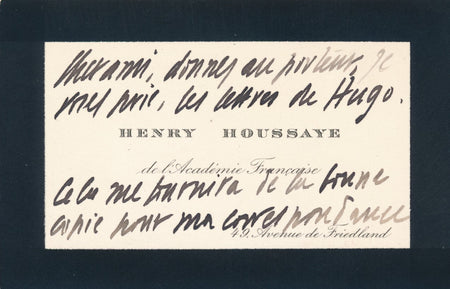 Cher ami, donnez au porteur, je
vous prie, les lettres de Hugo.
HENRY HOUSSAYE
de l'Académie Française
Cela me fournira de la bonne
copie pour ma correspondance
49. Avenue de Friedland